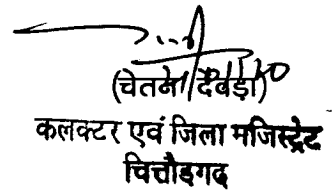 (चेतन देवड़ा)
कलक्टर एवं जिला मजिस्ट्रेट
चित्तौड़गढ़